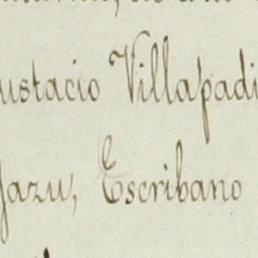 ustacio Villapadi
jazu, Escribano